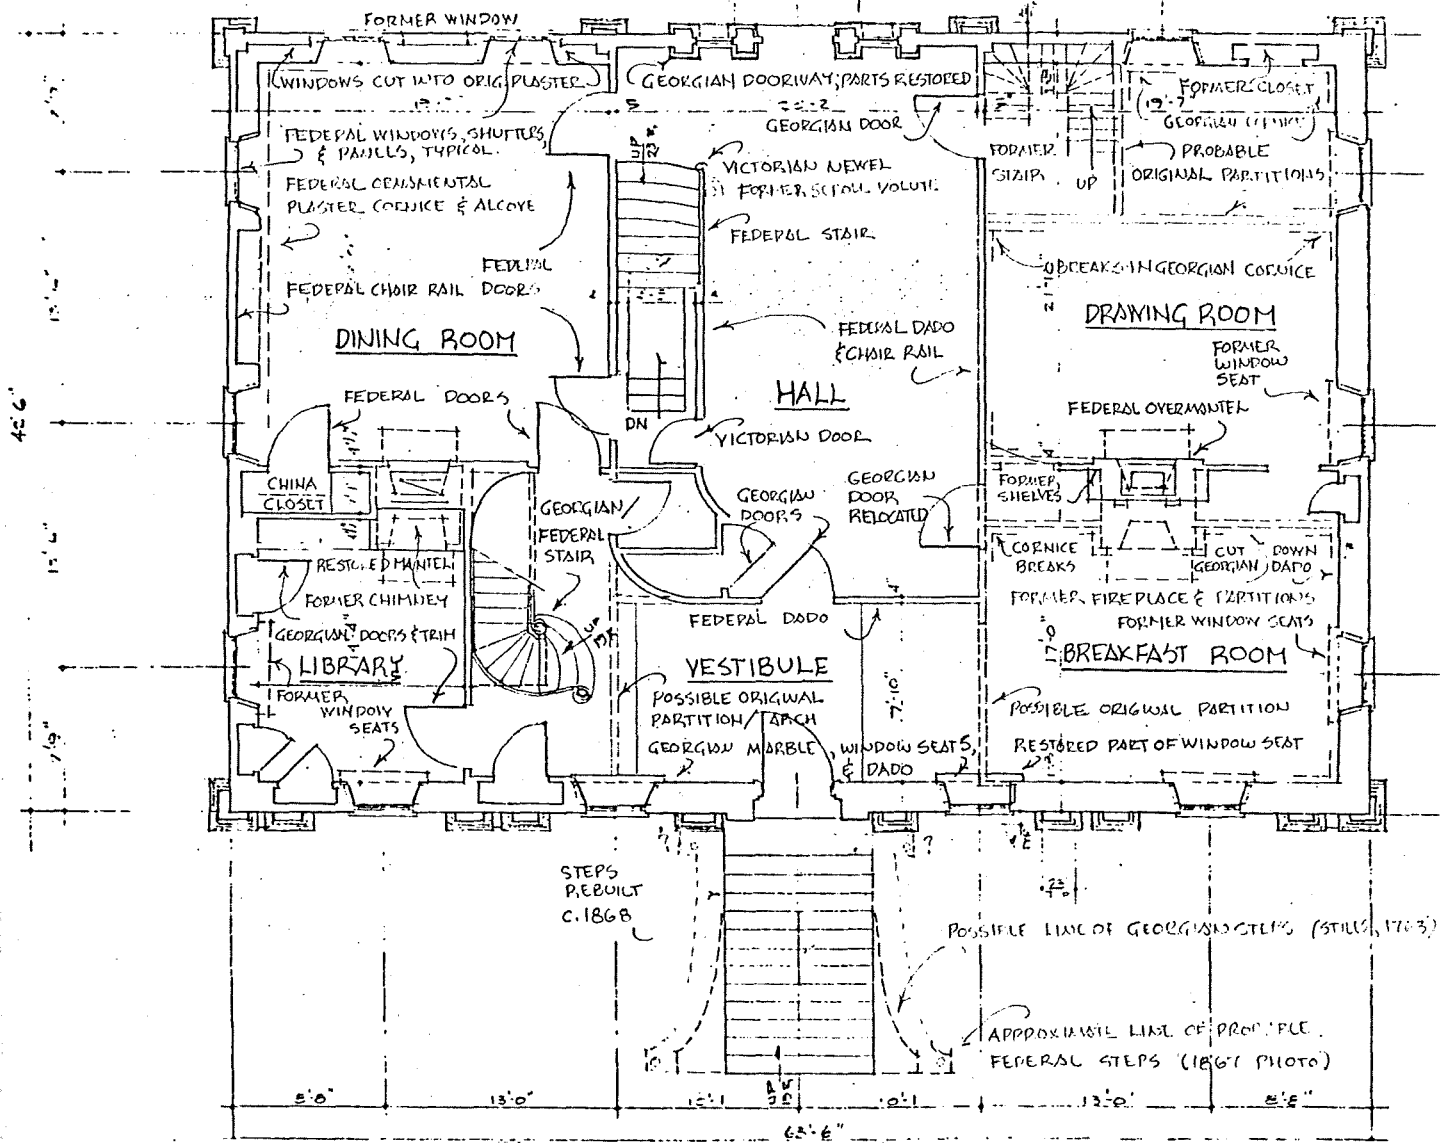 FORMER WINDOW
WINDOWS CUT INTO ORIG. PLASTER
GEORGIAN DOORWAY; PARTS RESTORED
FORMER CLOSET
GEORGIAN
GEORGIAN DOOR
FEDERAL WINDOWS, SHUTTERS,
& PANELS, TYPICAL.
FEDERAL ORNAMENTAL
PLASTER CORNICE & ALCOVE
UP
VICTORIAN NEWEL
FORMER SCROLL VOLUTE
FORMER
STAIR
UP
PROBABLE
ORIGINAL PARTITIONS
FEDERAL STAIR
FEDERAL
DOORS
FEDERAL CHAIR RAIL
BREAKS IN GEORGIAN CORNICE
DINING ROOM
FEDERAL DADO
& CHAIR RAIL
DRAWING ROOM
FORMER
WINDOW
SEAT
HALL
FEDERAL DOORS
FEDERAL OVERMANTEL
DN
VICTORIAN DOOR
CHINA
CLOSET
GEORGIAN/
FEDERAL
STAIR
GEORGIAN
DOORS
GEORGIAN
DOOR
RELOCATED
FORMER
SHELVES
RESTORED MANTEL
CORNICE
BREAKS
CUT DOWN
GEORGIAN DADO
FORMER CHIMNEY
FORMER FIREPLACE & PARTITIONS
FORMER WINDOW SEATS
GEORGIAN DOORS & TRIM
UP
FEDERAL DADO
LIBRARY
VESTIBULE
BREAKFAST ROOM
17'-0"
FORMER
WINDOW
SEATS
POSSIBLE ORIGINAL
PARTITION/ARCH
7'-10"
POSSIBLE ORIGINAL PARTITION
GEORGIAN MARBLE, WINDOW SEATS,
& DADO
RESTORED PART OF WINDOW SEAT
?
?
STEPS
REBUILT
C. 1868
POSSIBLE LINE OF GEORGIAN STEPS
APPROXIMATE LINE OF PROBABLE
FEDERAL STEPS (1867 PHOTO)
UP
8'-8"
13'-0"
10'-1
13'-0"
8'-8"
63'-6"